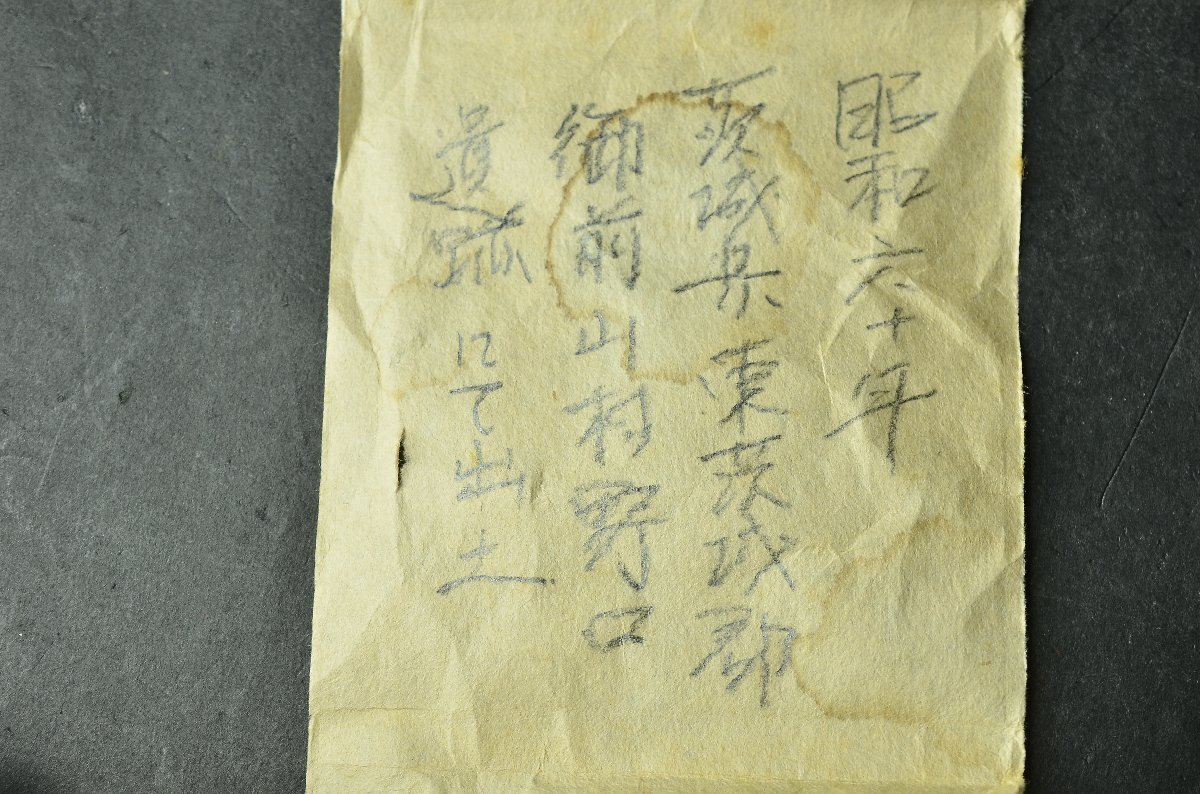 昭和六十年
茨城県東茨城郡
御前山村野口
遺跡にて出土